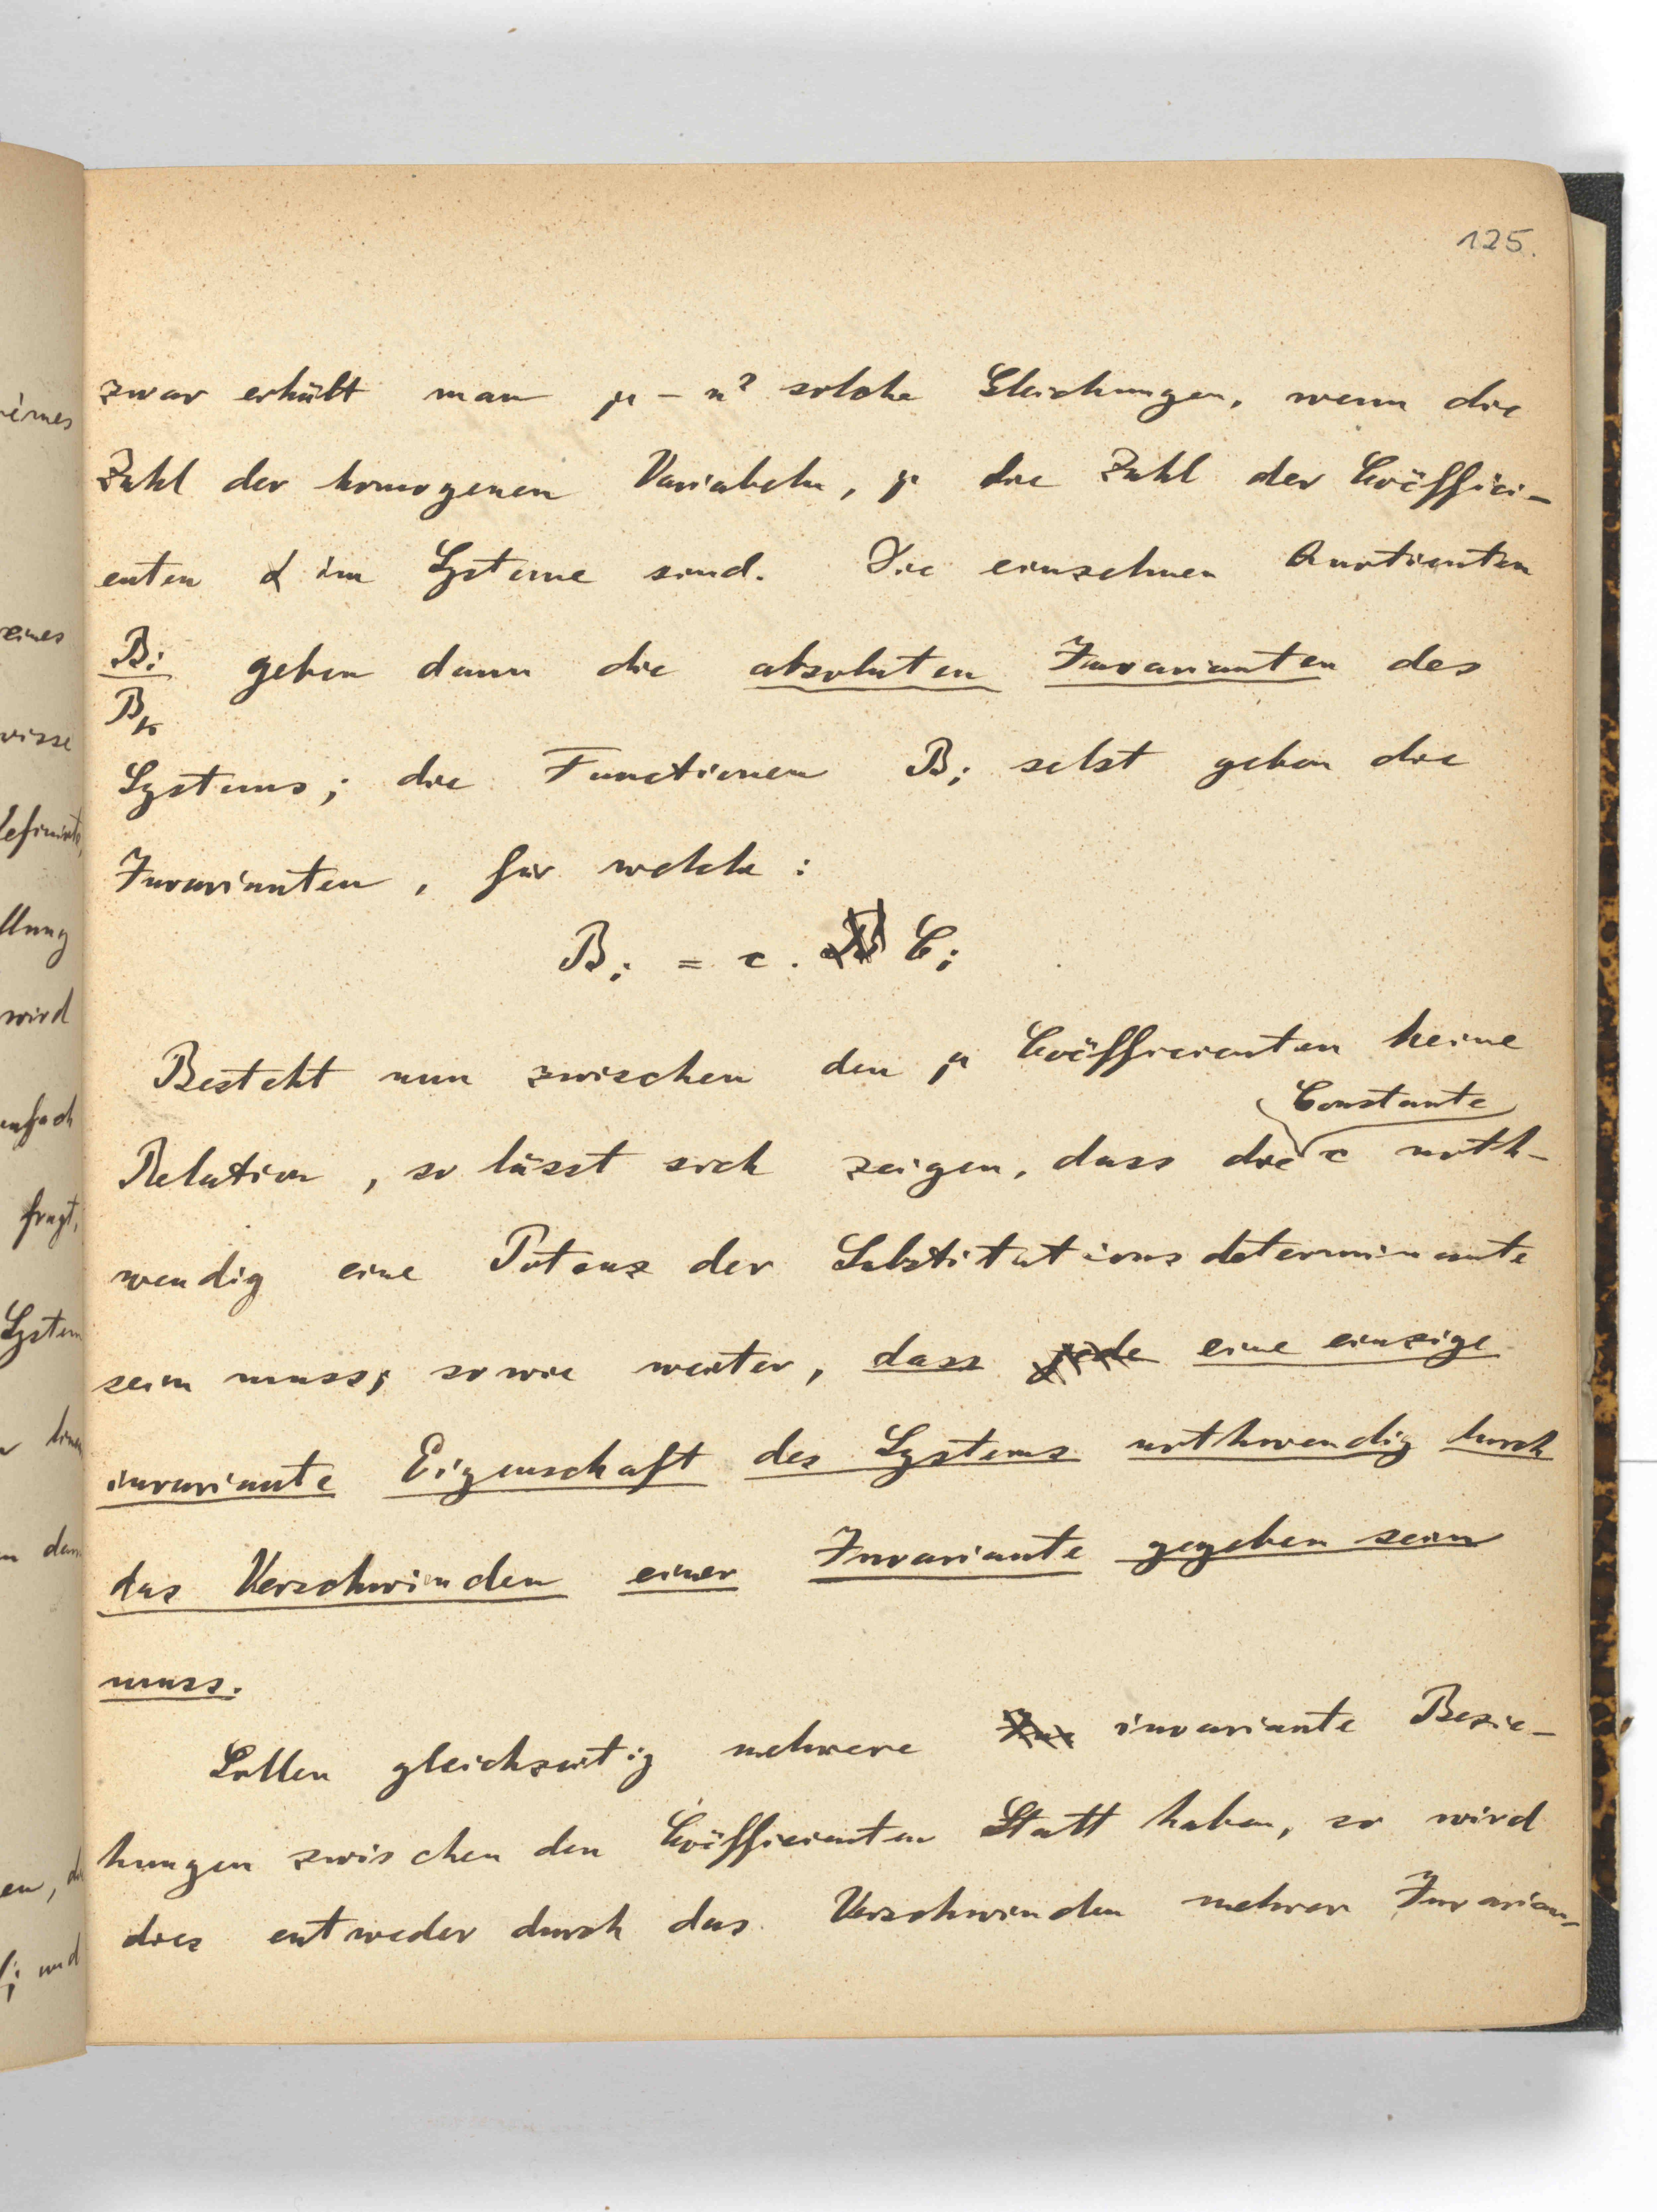 125.
zwar erhält man μ - n² solche Gleichungen, wenn die
Zahl der homogenen Variabeln, μ die Zahl der Coëffici-
enten α im Systeme sind. Die einzelnen Quotienten
B_i/B_k geben dann die absoluten Invarianten des
Systems; die Functionen B_i selbst geben die
Invarianten, für welche:
B_i = c. C_i
Besteht nun zwischen den μ Coëfficienten keine
Constante
Relation, so lässt sich zeigen, dass die c noth-
wendig eine Potenz der Substitutionsdeterminante
sein muss; sowie weiter, dass jede eine einzige
invariante Eigenschaft des Systems nothwendig durch
das Verschwinden einer Invariante gegeben sein
muss.
Sollen gleichzeitig mehrere Inv invariante Bezie-
hungen zwischen den Coëfficienten Statt haben, so wird
dies entweder durch das Verschwinden mehrer Invarian-
eines
eines
wisse
llung
wird
nfach
fragt,
System
en,
und